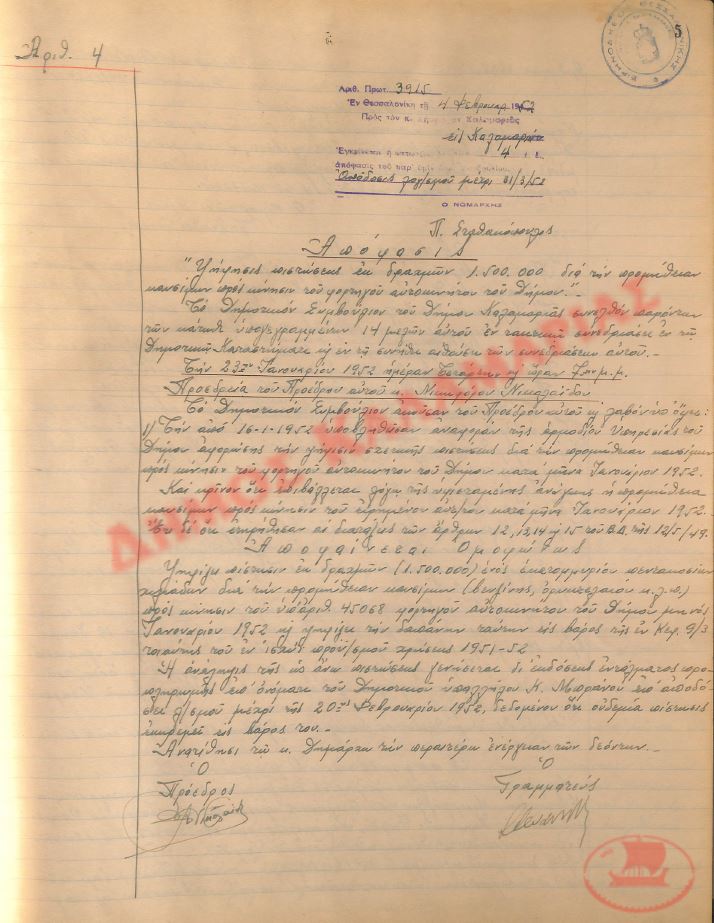 5
Ἀριθ. 4
ΕΙΡΗΝΟΔΙΚΕΙΟΝ ΘΕΣΣΑΛΟΝΙΚΗΣ
Ἀριθ. Πρωτ. 3915
Ἐν Θεσσαλονίκῃ τῇ 4 Φεβρουαρ 1952
Πρὸς τὸν κ. Δήμαρχον Καλαμαριᾶς
εἰς Καλαμαριὰ
Ἐγκρίνεται ἡ 4
ἀπόφασις τοῦ παρ'
Ἀπόδοσις λογ/σμοῦ μέχρι 31/3/52
Ο ΝΟΜΑΡΧΗΣ
Π.
Ἀπόφασις
"Ψήφισις πιστώσεως ἐκ δραχμῶν 1.500.000 διὰ τὴν προμήθειαν
καυσίμων πρὸς κίνησιν τοῦ φορτηγοῦ αὐτοκινήτου τοῦ Δήμου."-
Τὸ Δημοτικὸν Συμβούλιον τοῦ Δήμου Καλαμαριᾶς συνελθὸν παρόντων
τῶν κάτωθι ὑπογεγραμμένων 14 μελῶν αὐτοῦ ἐν τακτικῇ συνεδριάσει ἐν τῷ
Δημοτικῷ Καταστήματι κ ἐν τῇ συνήθει αἰθούσῃ τῶν συνεδριάσεων αὐτοῦ.-
Τὴν 23ην Ἰανουαρίου 1952 ἡμέραν Τετάρτην κ ὥραν 7 μ.μ.
Προεδρείᾳ τοῦ Προέδρου αὐτοῦ κ. Νικηφόρου Νικολαΐδου
Τὸ Δημοτικὸν Συμβούλιον ἀκοῦσαν τοῦ Προέδρου αὐτοῦ κ λαβὸν ὑπ' ὄψει:
1) Τὴν ἀπὸ 16-1-1952 ὑποβληθεῖσαν ἀναφορὰν τῆς ἁρμοδίου Ὑπηρεσίας τοῦ
Δήμου ἀφορώσης τὴν ψήφισιν σχετικῆς πιστώσεως διὰ τὴν προμήθειαν καυσίμων
πρὸς κίνησιν τοῦ φορτηγοῦ αὐτοκινήτου τοῦ Δήμου κατὰ μῆνα Ἰανουάριον 1952.
Καὶ κρῖνον ὅτι ἐπιβάλλεται λόγῳ τῆς ὑφισταμένης ἀνάγκης ἡ προμήθεια
καυσίμων πρὸς κίνησιν τοῦ εἰρημένου αὐτ/του κατὰ μῆνα Ἰανουάριον 1952.
Ἔτι δὲ ὅτι ἐτηρήθησαν αἱ διατάξεις τῶν ἄρθρων 12, 13, 14 κ 15 τοῦ Β.Δ. τῆς 12/5/49.
Ἀποφαίνεται Ὁμοφώνως
Ψηφίζει πίστωσιν ἐκ δραχμῶν (1.500.000) ἑνὸς ἑκατομμυρίου πεντακοσίων
χιλιάδων διὰ τὴν προμήθειαν καυσίμων (βενζίνης, ὀρυκτελαίου κ.λ.π.)
πρὸς κίνησιν τοῦ ὑπ' ἀριθ. 45068 φορτηγοῦ αὐτοκινήτου τοῦ Δήμου μηνὸς
Ἰανουαρίου 1952 κ ψηφίζει τὴν δαπάνην ταύτην εἰς βάρος τῆς ἐν Κεφ. 9/3
τοιαύτης τοῦ ἐν ἰσχύϊ προϋπ/σμοῦ χρήσεως 1951-52
Ἡ ἀνάληψις τῆς ὡς ἄνω πιστώσεως γενήσεται δι' ἐκδόσεως ἐντάλματος προ-
πληρωμῆς ἐπ' ὀνόματι τοῦ Δημοτικοῦ ὑπαλλήλου Κ. Μπράνου ἐπὶ ἀποδό-
σει λ/σμοῦ μέχρι τῆς 20ης Φεβρουαρίου 1952, δεδομένου ὅτι οὐδεμία πίστωσις
ἐκκρεμεῖ εἰς βάρος του.-
Ἀνατίθησι τῷ κ. Δημάρχῳ τὴν περαιτέρω ἐνέργειαν τῶν δεόντων.-
Ὁ Ὁ
Πρόεδρος Γραμματεύς
ΔΗΜΟΣ ΚΑΛΑΜΑΡΙΑΣ